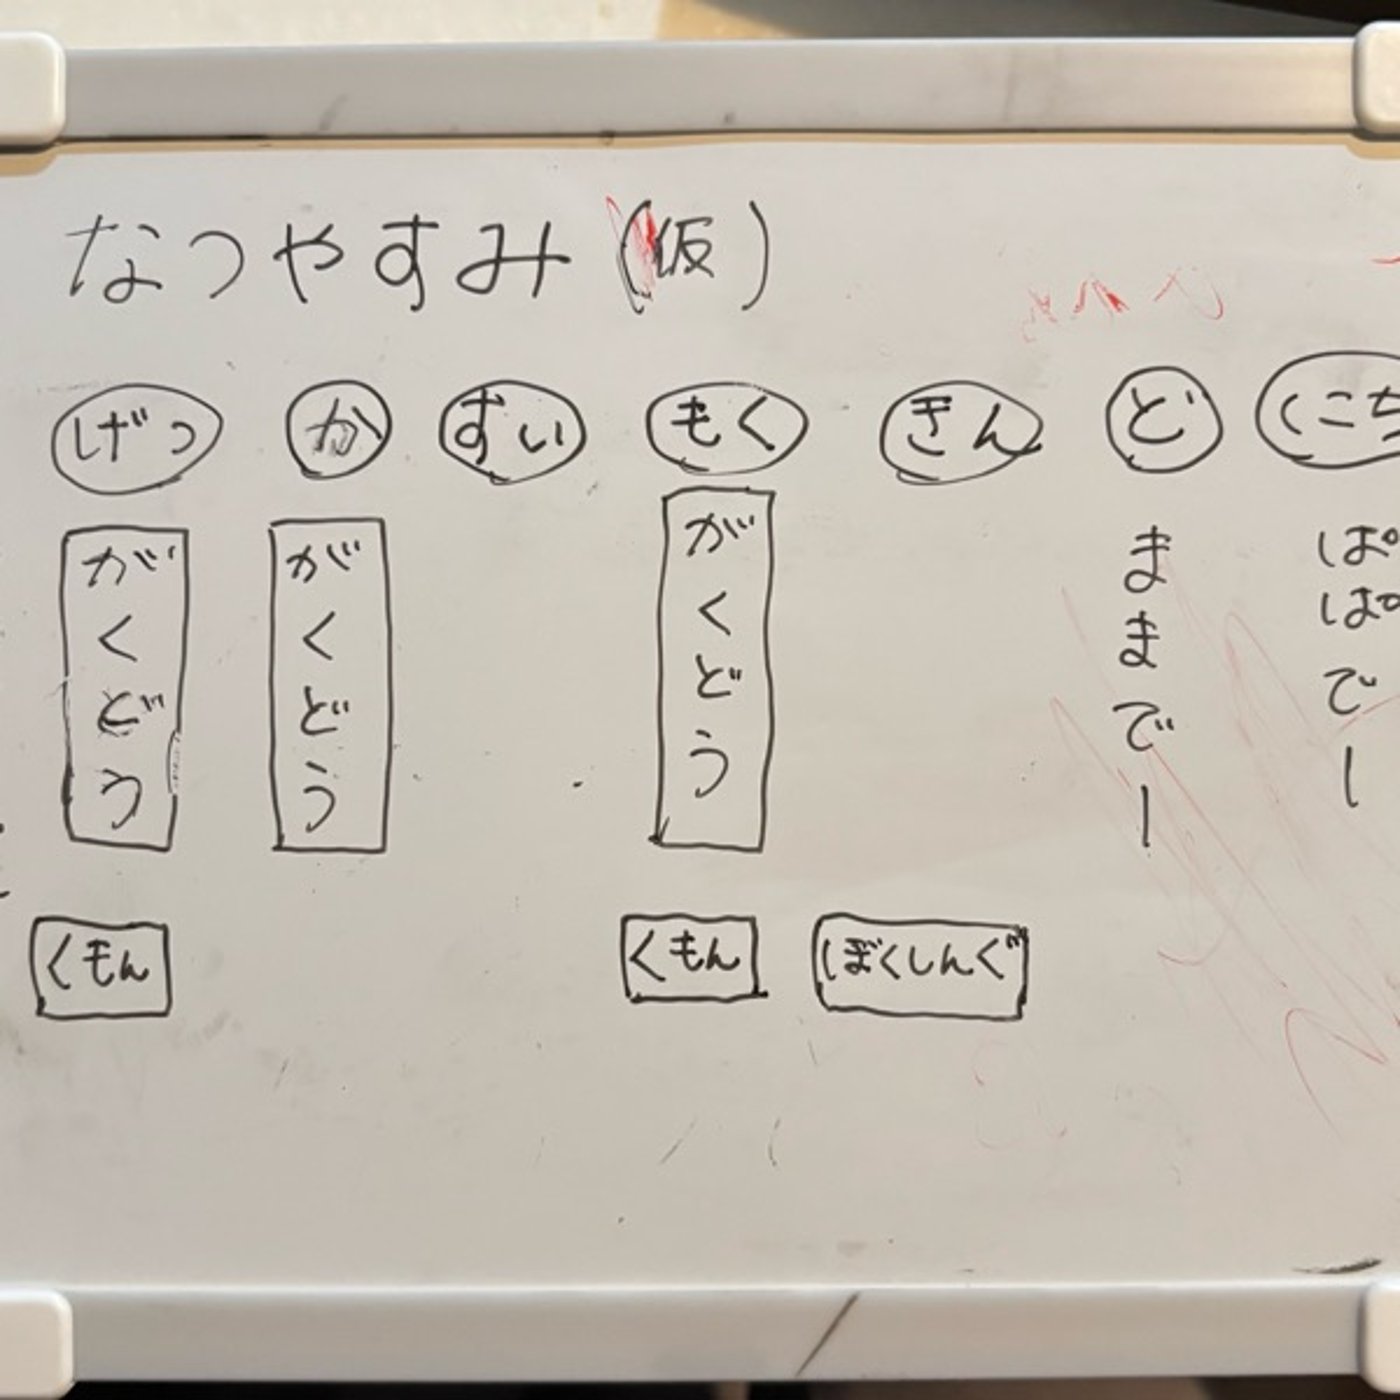 なつやすみ(仮)
げつ か すい もく きん ど にち
がくどう がくどう がくどう ままでー ぱぱでー
くもん くもん ぼくしんぐ